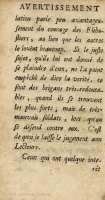 AVERTISSEMENT
lation parle peu avantageu-
sement du courage des Flibu-
stiers, au lieu que les autres
le loüent beaucoup. Si le juste
sujet, qu'ils lui ont donné de
se plaindre d'eux, ne l'a point
empêché de dire la verité, ce
sont des brigans très-redouta-
bles, quand ils se trouvent
les plus forts, mais de très-
mauvais soldats, lors qu'on
se défend contre eux. C'est
de quoi je laisse le jugement aux
Lecteurs.
Ceux qui ont quelque inte-
rêt